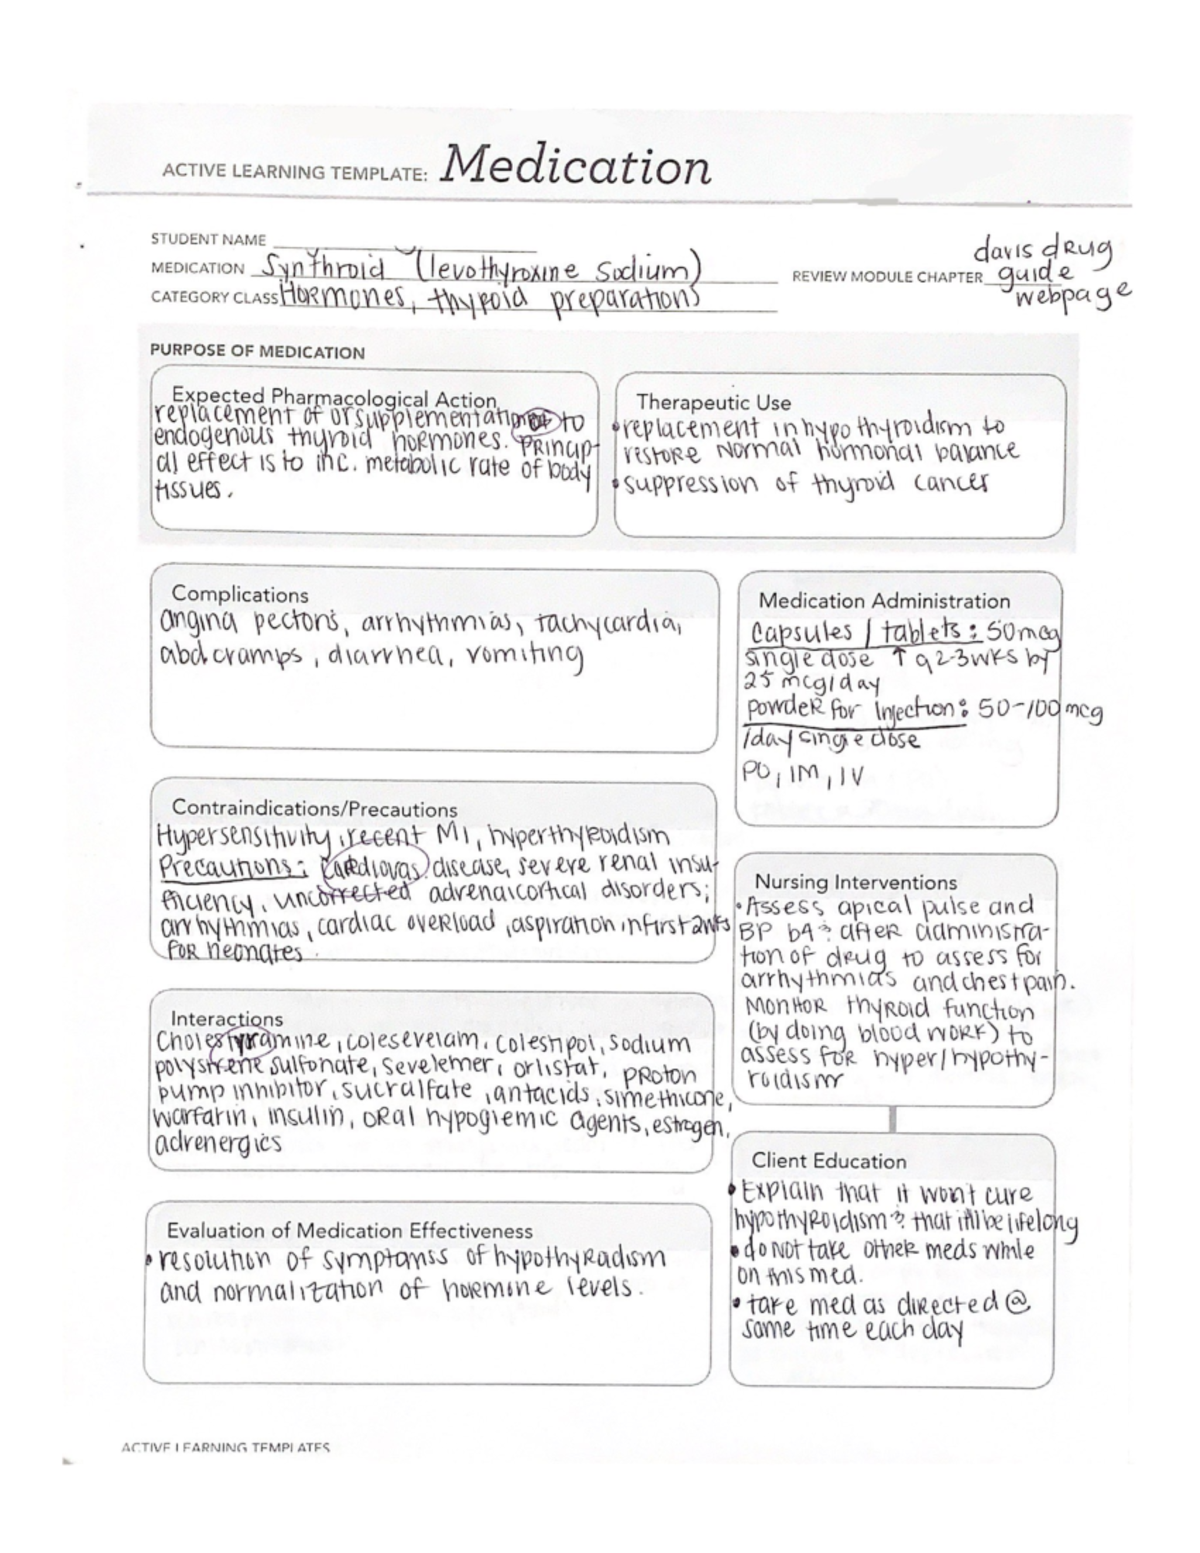 ACTIVE LEARNING TEMPLATE: Medication
STUDENT NAME
MEDICATION Synthroid (levothyroxine sodium)
CATEGORY CLASS Hormones, thyroid preparations
REVIEW MODULE CHAPTER davis drug
guide
webpage
PURPOSE OF MEDICATION
Expected Pharmacological Action
replacement of or supplementation to
endogenous thyroid hormones. Princip-
al effect is to inc. metabolic rate of body
tissues.
Therapeutic Use
• replacement in hypothyroidism to
restore normal hormonal balance
• suppression of thyroid cancer
Complications
angina pectoris, arrhythmias, tachycardia,
abd. cramps, diarrhea, vomiting
Medication Administration
Capsules / tablets: 50mcg
single dose ↑ q2-3wks by
25 mcg/day
powder for injection: 50-100 mcg
/day single dose
PO, IM, IV
Contraindications/Precautions
Hypersensitivity, recent MI, hyperthyroidism
Precautions: Cardiovas. disease, severe renal insu-
fficiency, uncorrected adrenalcortical disorders;
arrhythmias, cardiac overload, aspiration in first 2wks
for neonates.
Nursing Interventions
• Assess apical pulse and
BP b4 & after administra-
tion of drug to assess for
arrhythmias and chest pain.
Monitor thyroid function
(by doing blood work) to
assess for hyper/hypothy-
roidism
Interactions
Cholestyramine, colesevelam, colestipol, sodium
polystrene sulfonate, sevelemer, orlistat, proton
pump inhibitor, sucralfate, antacids, simethicone,
warfarin, insulin, oral hypoglemic agents, estrogen,
adrenergics
Client Education
• Explain that it wont cure
hypothyroidism & that itll be lifelong
• do not take other meds while
on this med.
• take med as directed @
same time each day
Evaluation of Medication Effectiveness
• resolution of symptomss of hypothyradism
and normalization of hormone levels.
ACTIVE LEARNING TEMPLATES